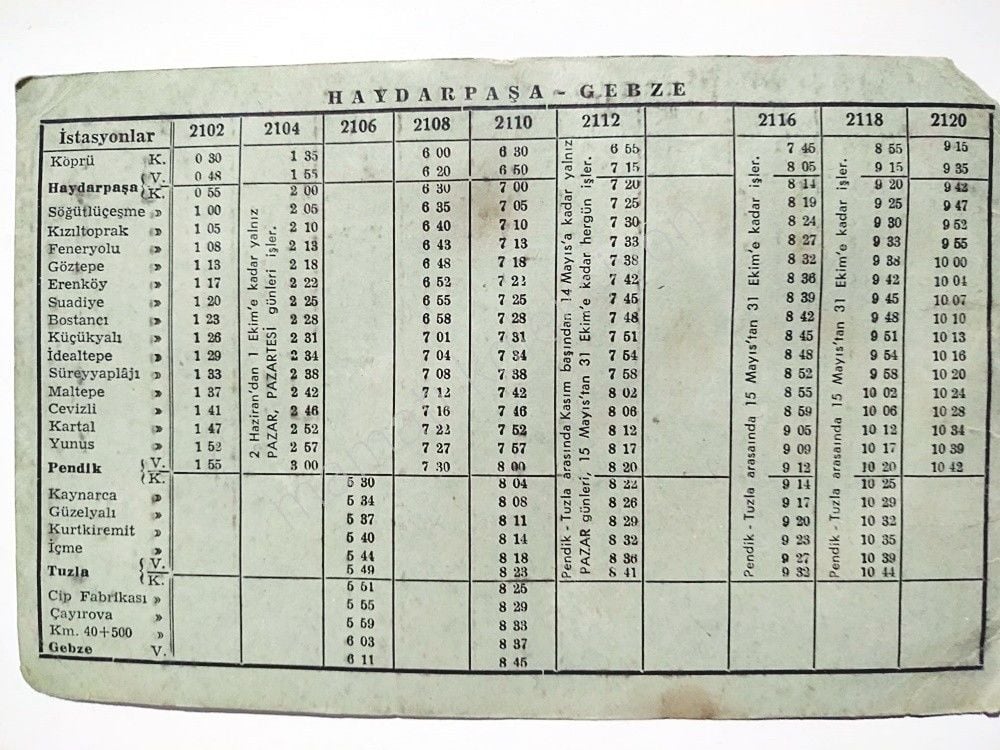 HAYDARPAŞA - GEBZE
İstasyonlar 2102 2104 2106 2108 2110 2112 2116 2118 2120
Köprü K. 0 30 1 35 6 00 6 30 6 55 7 45 8 55 9 15
V. 0 48 1 55 6 20 6 50 7 15 8 05 9 15 9 35
Haydarpaşa K. 0 55 2 00 6 30 7 00 7 20 8 14 9 20 9 42
Söğütlüçeşme » 1 00 2 05 6 35 7 05 7 25 8 19 9 25 9 47
Kızıltoprak » 1 05 2 10 6 40 7 10 7 30 8 24 9 30 9 52
Feneryolu » 1 08 2 13 6 43 7 13 7 33 8 27 9 33 9 55
Göztepe » 1 13 2 18 6 48 7 18 7 38 8 32 9 38 10 00
Erenköy » 1 17 2 22 6 52 7 22 7 42 8 36 9 42 10 04
Suadiye » 1 20 2 25 6 55 7 25 7 45 8 39 9 45 10 07
Bostancı » 1 23 2 28 6 58 7 28 7 48 8 42 9 48 10 10
Küçükyalı » 1 26 2 31 7 01 7 31 7 51 8 45 9 51 10 13
İdealtepe » 1 29 2 34 7 04 7 34 7 54 8 48 9 54 10 16
Süreyyaplâjı » 1 33 2 38 7 08 7 38 7 58 8 52 9 58 10 20
Maltepe » 1 37 2 42 7 12 7 42 8 02 8 55 10 02 10 24
Cevizli » 1 41 2 46 7 16 7 46 8 06 8 59 10 06 10 28
Kartal » 1 47 2 52 7 22 7 52 8 12 9 05 10 12 10 34
Yunus » 1 52 2 57 7 27 7 57 8 17 9 09 10 17 10 39
Pendik V. 1 55 3 00 7 30 8 00 8 20 9 12 10 20 10 42
K. 5 30 8 04 8 22 9 14 10 25
Kaynarca » 5 34 8 08 8 26 9 17 10 29
Güzelyalı » 5 37 8 11 8 29 9 20 10 32
Kurtkiremit » 5 40 8 14 8 32 9 23 10 35
İçme » 5 44 8 18 8 36 9 27 10 39
Tuzla V. 5 49 8 23 8 41 9 32 10 44
K. 5 51 8 25
Cip Fabrikası » 5 55 8 29
Çayırova » 5 59 8 33
Km. 40+500 » 6 03 8 37
Gebze V. 6 11 8 45
2 Haziran'dan 1 Ekim'e kadar yalnız
PAZAR, PAZARTESİ günleri işler.
Pendik - Tuzla arasında Kasım başından 14 Mayıs'a kadar yalnız
PAZAR günleri, 15 Mayıs'tan 31 Ekim'e kadar hergün işler.
Pendik - Tuzla arasında 15 Mayıs'tan 31 Ekim'e kadar işler.
Pendik - Tuzla arasaında 15 Mayıs'tan 31 Ekim'e kadar işler.